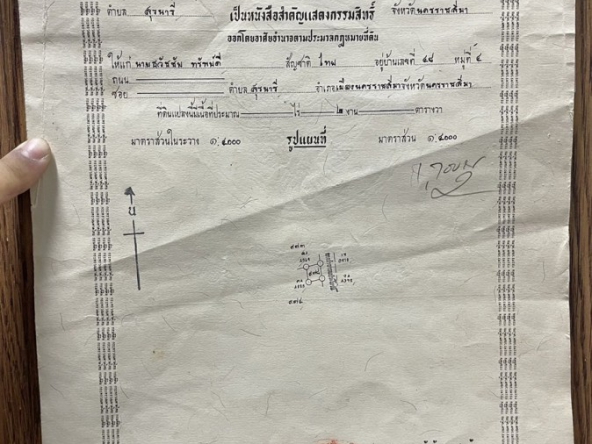 ตำบล สุรนารี จังหวัดนครราชสีมา
เป็นหนังสือสำคัญแสดงกรรมสิทธิ์
ออกโดยอาศัยอำนาจตามประมวลกฎหมายที่ดิน
ให้แก่ นายธวัชชัย ทรัพย์ดี สัญชาติ ไทย อยู่บ้านเลขที่ ๔๘ หมู่ที่ ๔
ถนน
ซอย ตำบล สุรนารี อำเภอเมืองนครราชสีมา จังหวัดนครราชสีมา
ที่ดินแปลงนี้มีเนื้อที่ประมาณ ไร่ ๒ งาน ตารางวา
มาตราส่วนในระวาง ๑:๔๐๐๐ รูปแผนที่ มาตราส่วน ๑:๔๐๐๐
น